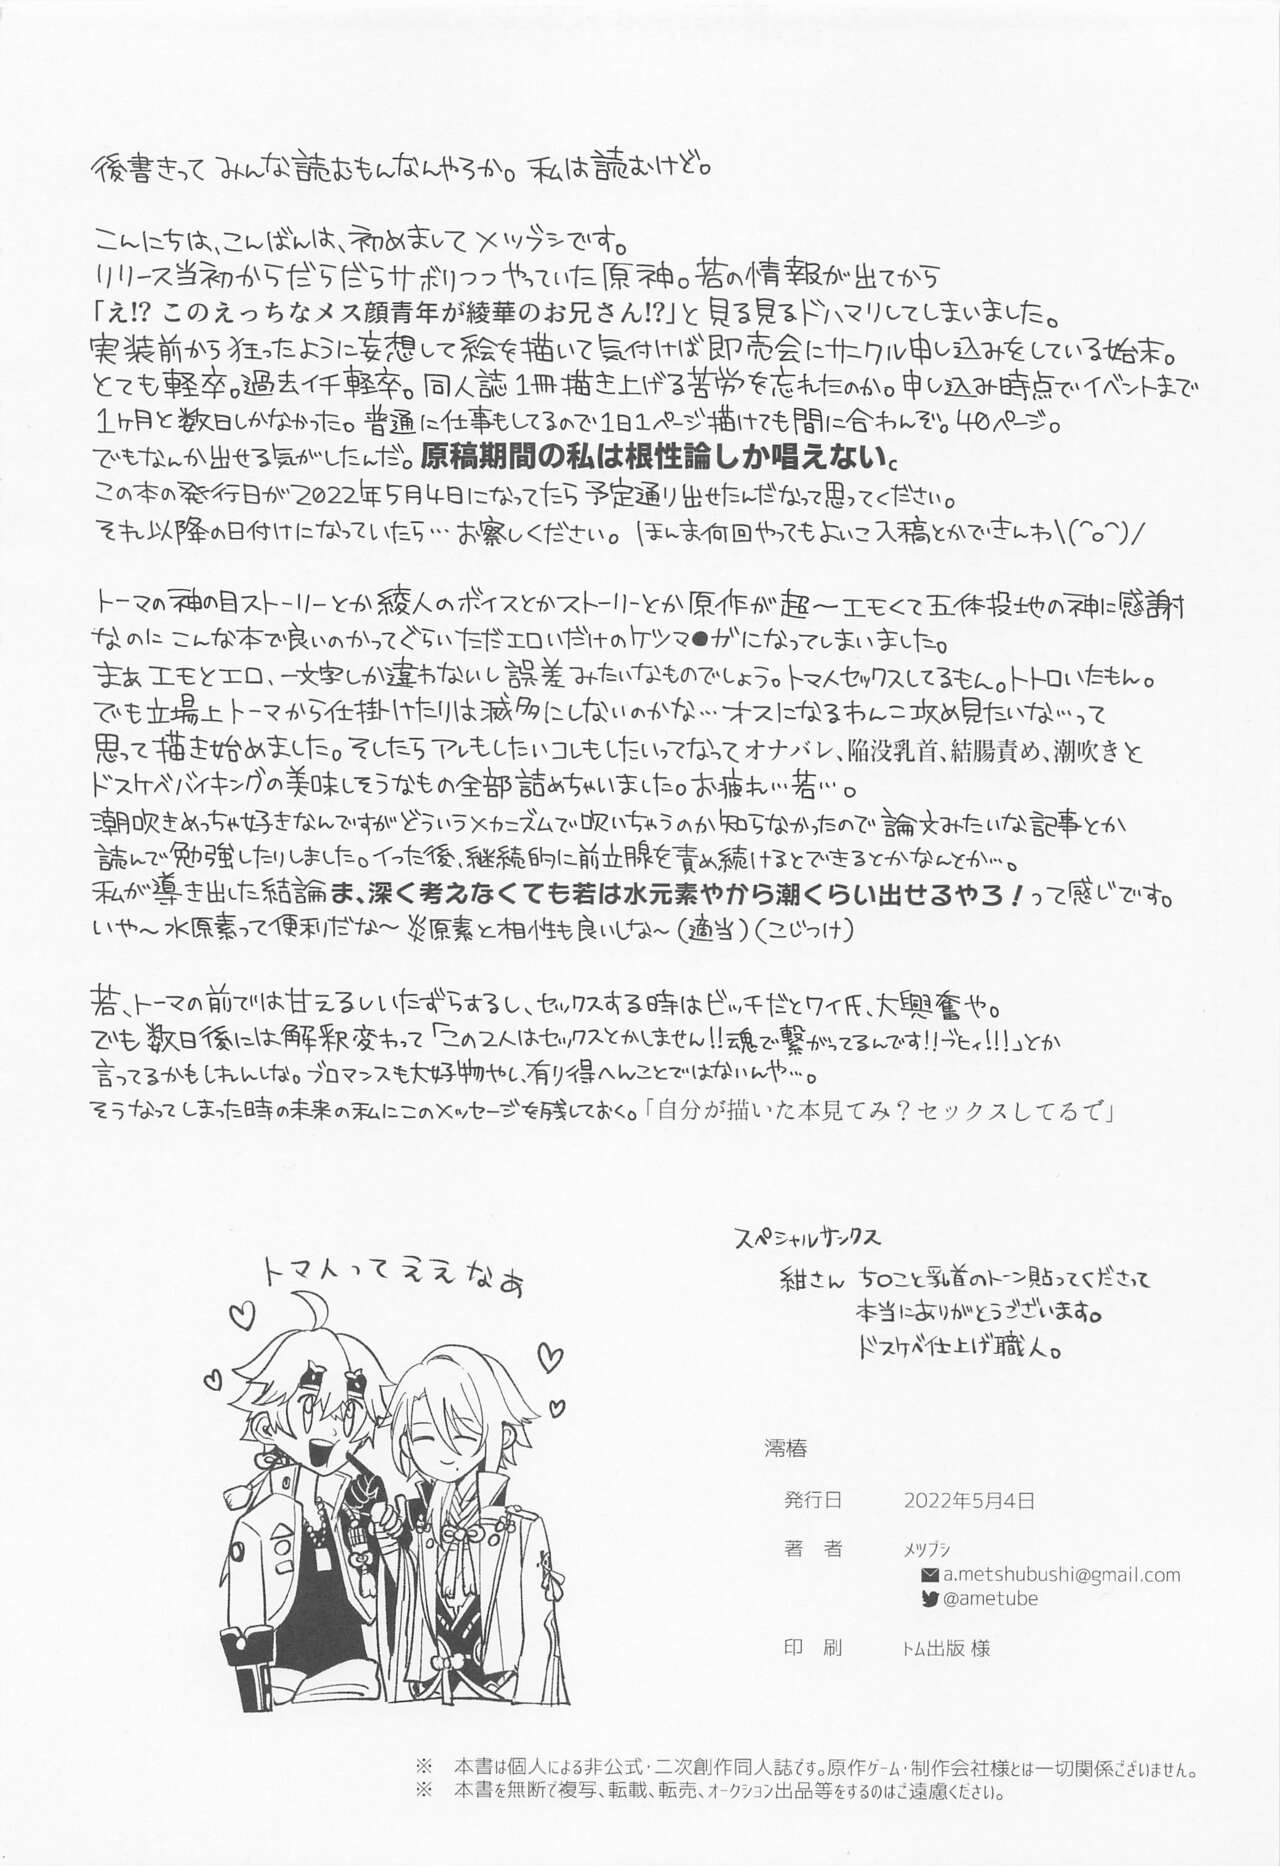 後書きって みんな読むもんなんやろか。私は読むけど。
こんにちは、こんばんは、初めまして メツブシです。
リリース当初からだらだらサボりつつやっていた原神。若の情報が出てから
「え!? このえっちなメス顔青年が綾華のお兄さん!?」と見る見るドハマリしてしまいました。
実装前から狂ったように妄想して絵を描いて気付けば即売会にサークル申し込みをしている始末。
とても軽卒。過去イチ軽卒。同人誌1冊描き上げる苦労を忘れたのか。申し込み時点でイベントまで
1ヶ月と数日しかなかった。普通に仕事もしてるので1日1ページ描けても間に合わんぞ。40ページ。
でもなんか出せる気がしたんだ。原稿期間の私は根性論しか唱えない。
この本の発行日が2022年5月4日になってたら予定通り出せたんだなって思ってください。
それ以降の日付けになっていたら…お察しください。ほんま何回やってもよいこ入稿とかできんわ\(^o^)/
トーマの神の目ストーリーとか綾人のボイスとかストーリーとか原作が超～エモくて五体投地の神に感謝
なのにこんな本で良いのかってぐらいただエロいだけのケツマ●がになってしまいました。
まぁエモとエロ、一文字しか違わないし誤差みたいなものでしょう。トマ人セックスしてるもん。トトロいたもん。
でも立場上トーマから仕掛けたりは滅多にしないのかな…オスになるわんこ攻め見たいな…って
思って描き始めました。そしたらアレもしたいコレもしたいってなってオナバレ、陥没乳首、結腸責め、潮吹きと
ドスケベバイキングの美味しそうなもの全部詰めちゃいました。お疲れ…若…。
潮吹きめっちゃ好きなんですがどういうメカニズムで吹いちゃうのか知らなかったので論文みたいな記事とか
読んで勉強したりしました。イった後、継続的に前立腺を責め続けるとできるとかなんとか…。
私が導き出した結論ま、深く考えなくても若は水元素やから潮くらい出せるやろ！って感じです。
いや～水原素って便利だな～炎原素と相性も良いしな～(適当)(こじつけ)
若、トーマの前では甘えるしいたずらするし、セックスする時はビッチだとワイ氏、大興奮や。
でも数日後には解釈変わって「この2人はセックスとかしません!!魂で繋がってるんです!!ブヒィ!!!」とか
言ってるかもしれんしな。ブロマンスも大好物やし、有り得へんことではないんや…。
そうなってしまった時の未来の私にこのメッセージを残しておく。「自分が描いた本見てみ？セックスしてるで」
トマ人ってええなぁ
スペシャルサンクス
紺さん ち○こと乳首のトーン貼ってくださって
本当にありがとうございます。
ドスケベ仕上げ職人。
澪椿
発行日 2022年5月4日
著 者 メツブシ
a.metshubushi@gmail.com
@ametube
印 刷 トム出版 様
※ 本書は個人による非公式・二次創作同人誌です。原作ゲーム・制作会社様とは一切関係ございません。
※ 本書を無断で複写、転載、転売、オークション出品等をするのはご遠慮ください。